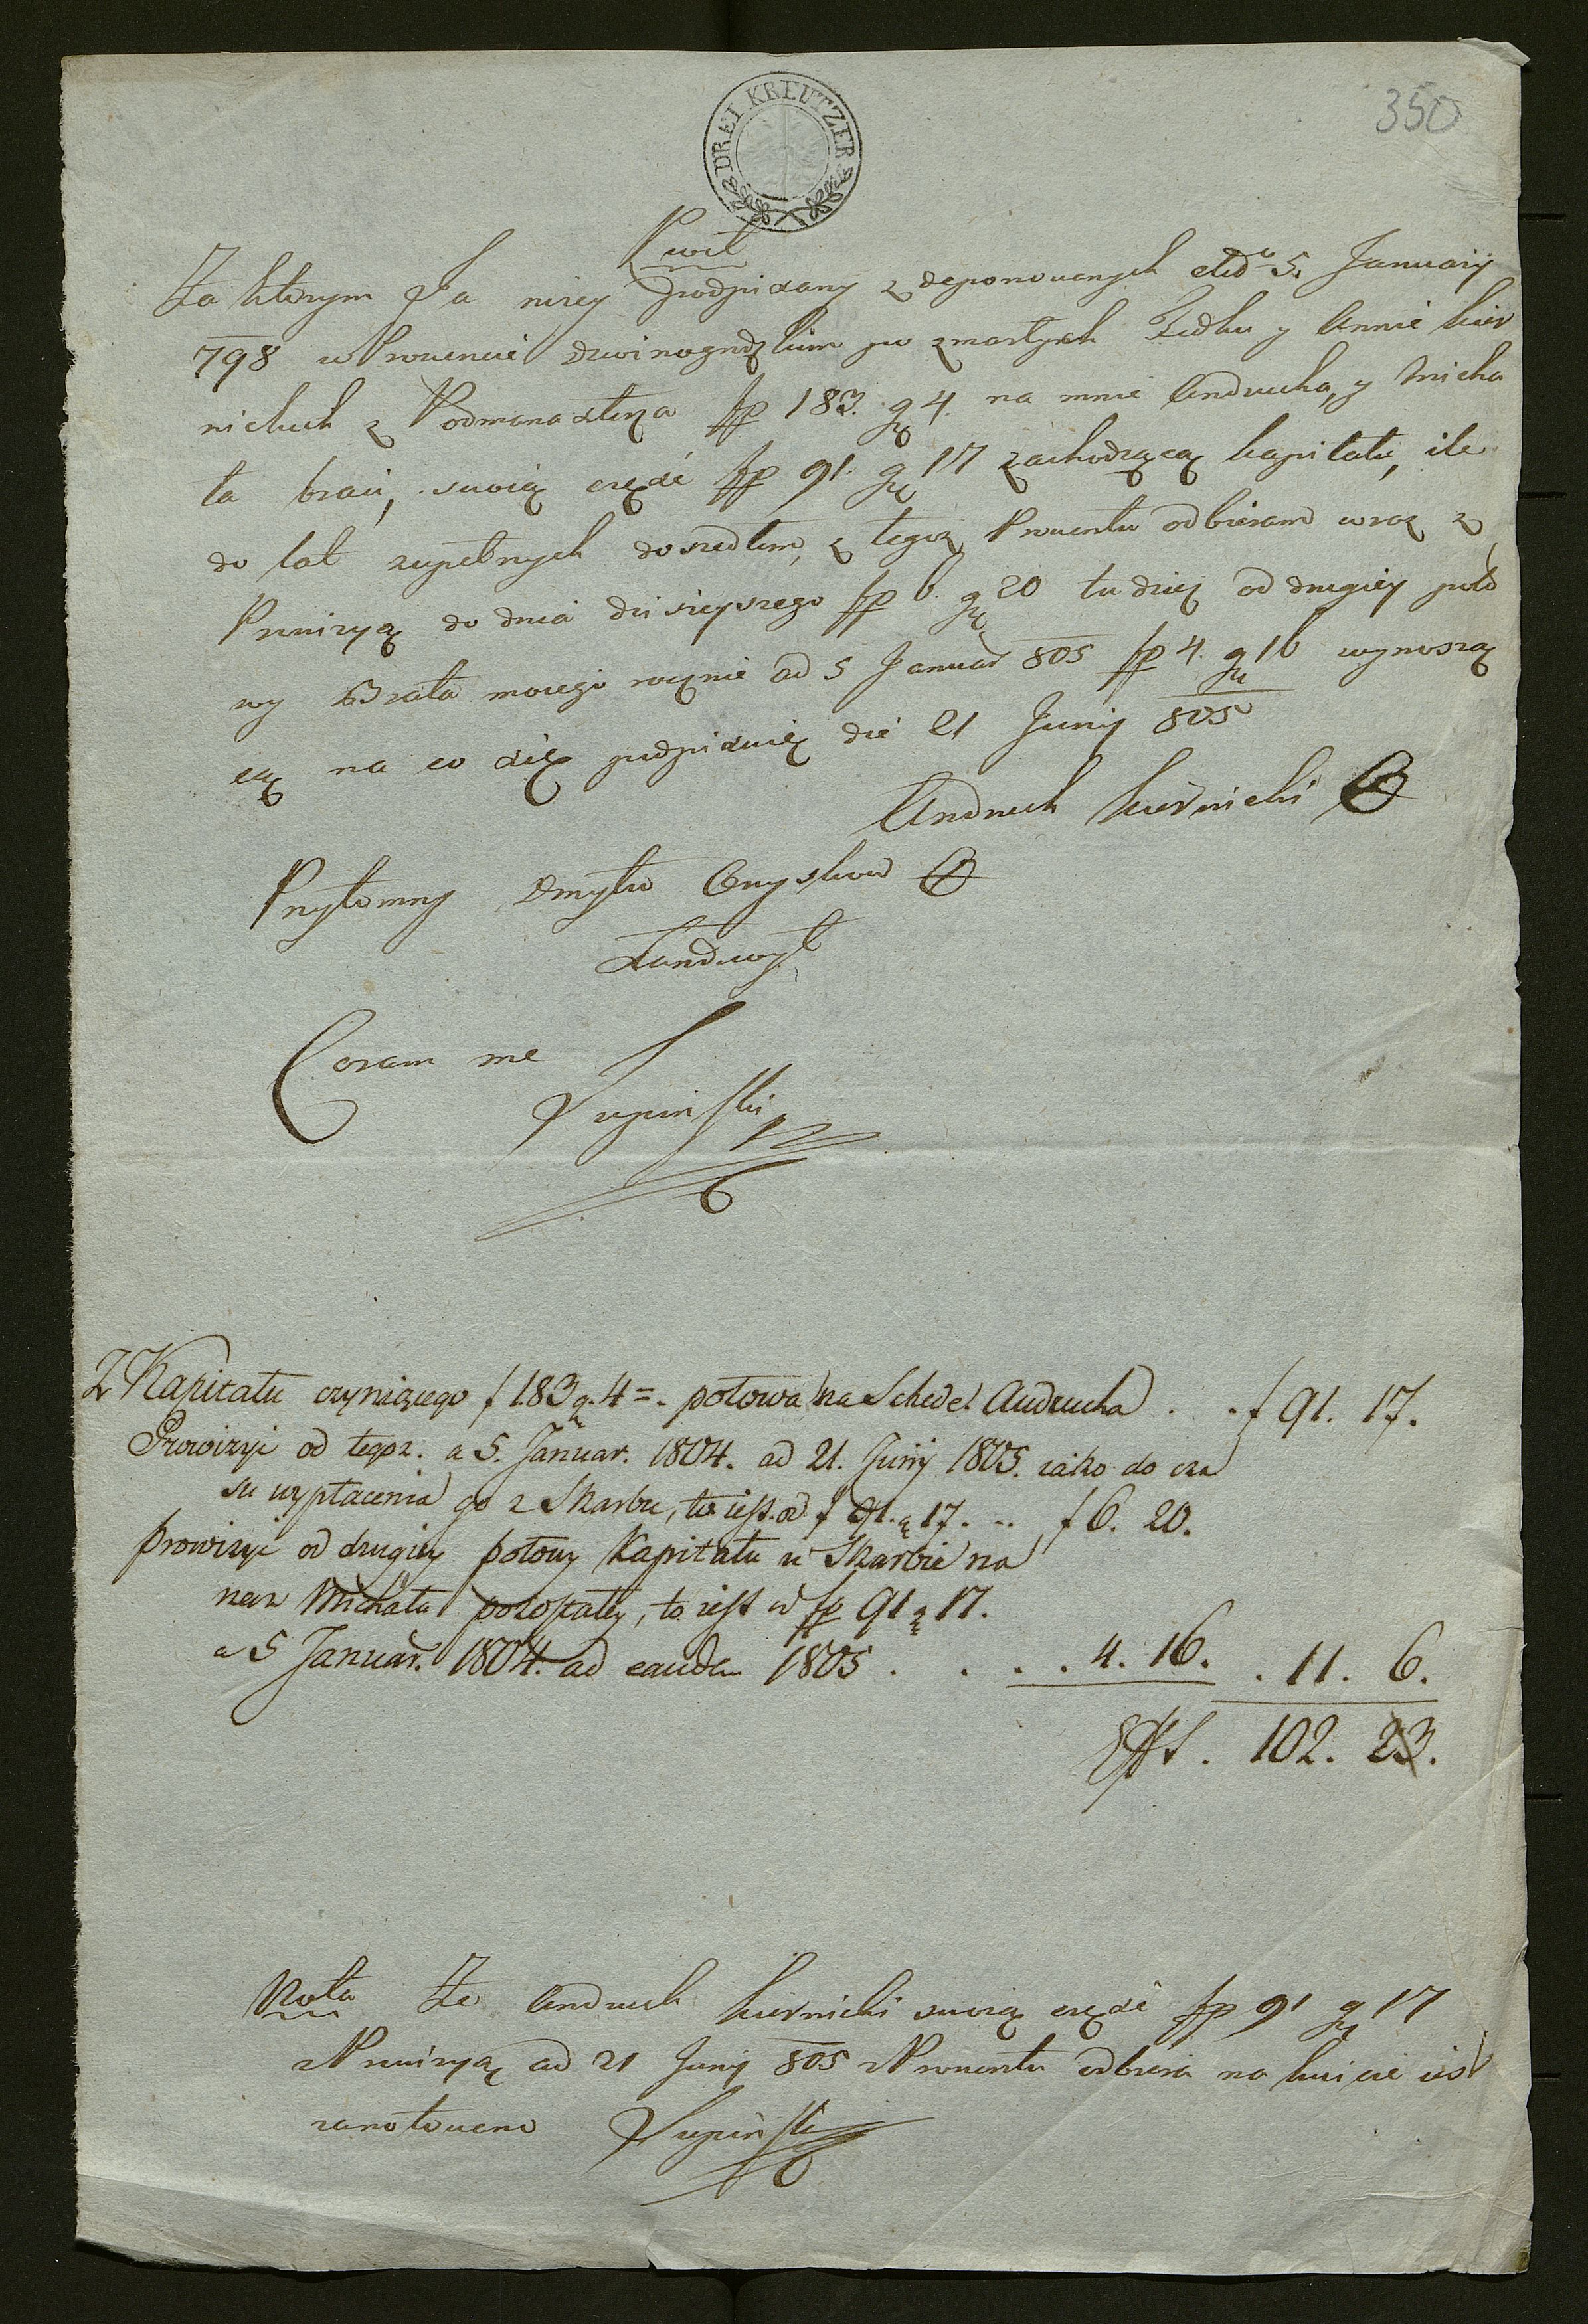 350
DREI KREUTZER
Kwit
Za którym Ja niżey podpisany z deponowanych dto 5. January
798 w Prowencie dzwinogrodzkim po zmarłych Fedku y Annie kier
nickich z Podmanasterza fp 183. gr 4. na mnie Andrucha, y Micha
ła braci, swoią część fp 91. gr 17 zachodzącą kapitału, ile
do lat zupełnych doszedłem, z tegoż Prowentu odbieram wraz z
Prowizyą do dnia dzisieyszego fp 6. gr 20 tudzież od drugiey poło
wy Brata moiego rocznie ad 5 Januar 805 fp 4. gr 16 wynoszą
cą na co się podpisuię die 21 Juny 805
Andruch kiernicki
Przytomny Dmytro Onyskow
Landwoyt
Coram me
Lupiński
Z Kapitału czyniącego f 183 g. 4 = . połowa na Schede Andrucha . . f 91. 17.
Prowizyi od tegoż. a 5. Januar. 1804. ad 21. Junij 1805. iako do cza
su wypłacenia go z Skarbu, to iest. od f 91. g 17. .. f 6. 20.
prowizyi od drugiey połowy Kapitału w Skarbie na
rzecz Michała pozostałey, to iest od fp 91 g 17.
a 5 Januar. 1804. ad eandem 1805 . . . . 4. 16. . 11. 6.
102. 23.
Nota Ze Andruch kiernicki swoią część fp 91 gr 17
z Prowizyą ad 21 Juny 805 z Prowentu odbiera na kwicie iest
zanotowano Lupiński